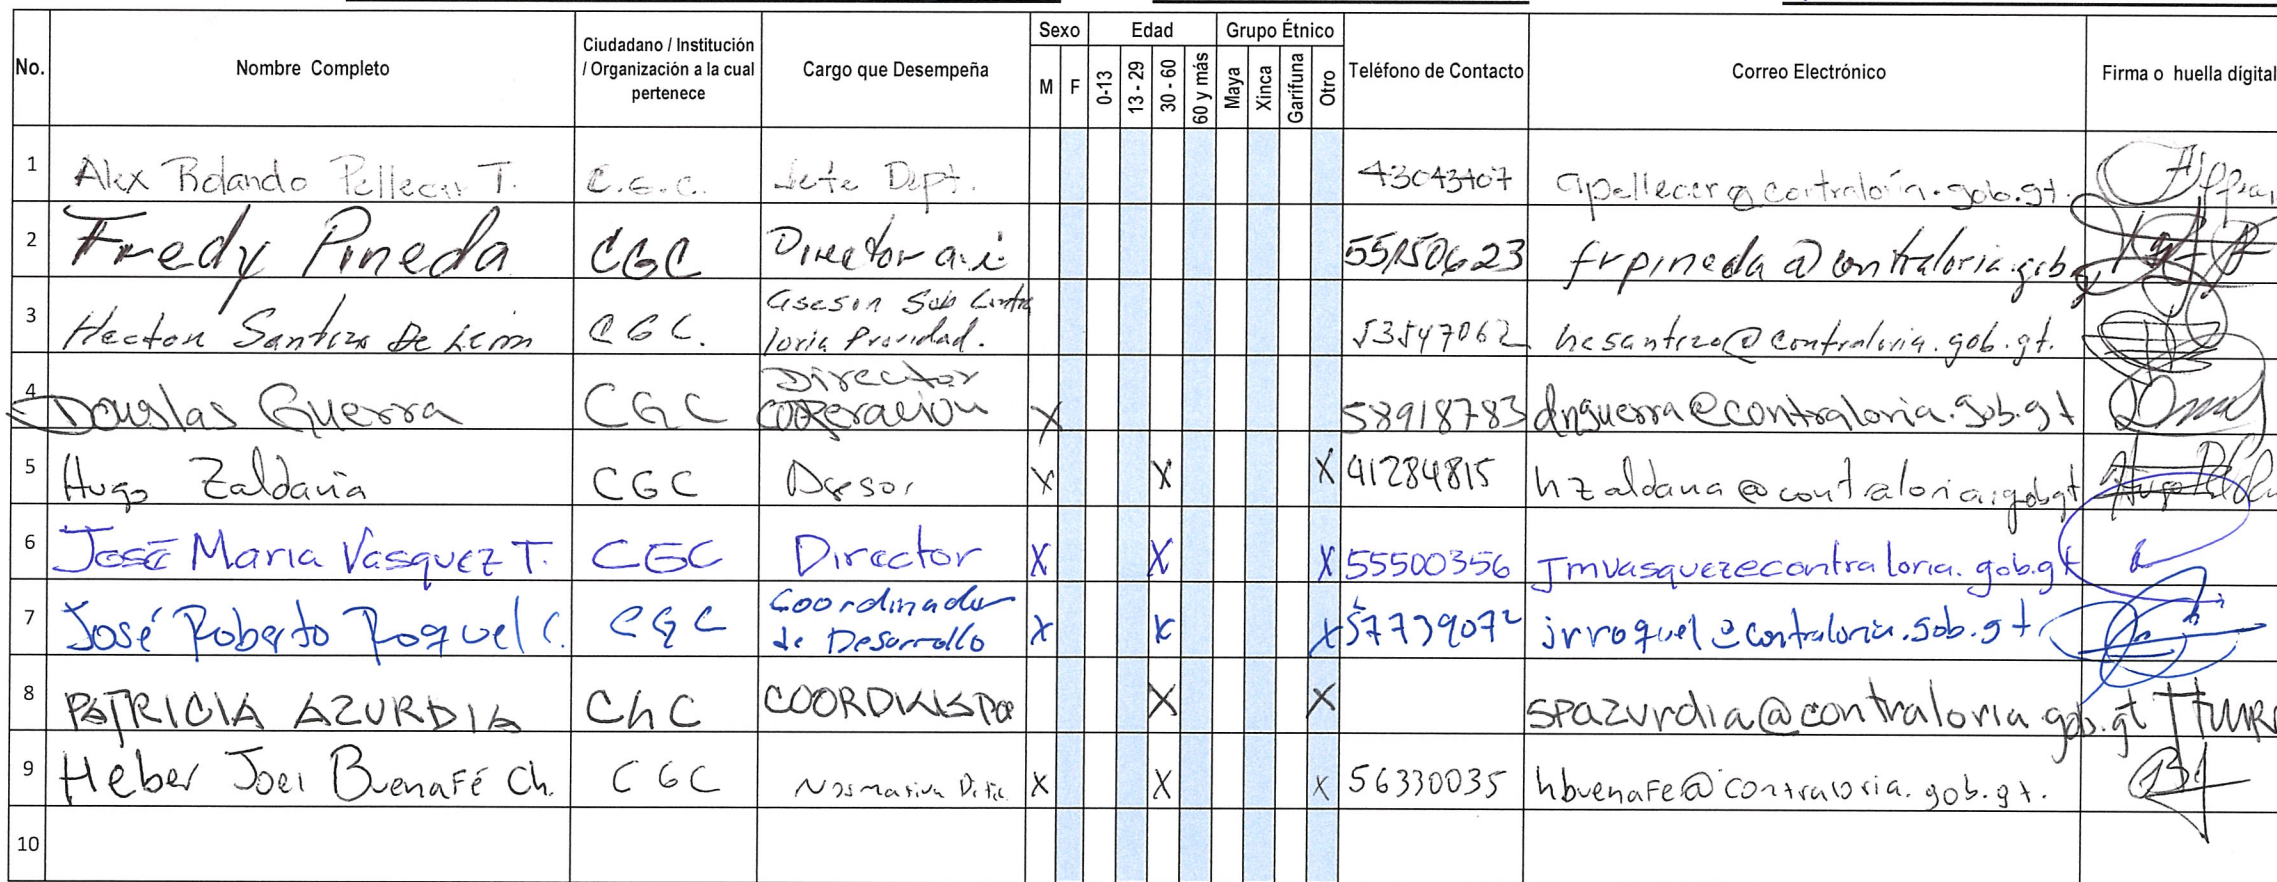 No. Nombre Completo Ciudadano / Institución / Organización a la cual pertenece Cargo que Desempeña Sexo M F Edad 0-13 13 - 29 30 - 60 60 y más Grupo Étnico Maya Xinca Garífuna Otro Teléfono de Contacto Correo Electrónico Firma o huella dígital
1 Alex Rolando Pellecer T. C.G.C. Jefe Dept. 43043407 apellecer@contraloría.gob.gt.
2 Fredy Pineda CGC Director a.i 55150623 frpineda@contraloria.gob
3 Hector Santizo De León CGC. asesor Sub Contra
loria Providad. 53547062 hesantizo@contraloria.gob.gt.
4 Douglas Guerra CGC Director
cooperación X 58918783 dnguerra@contraloria.gob.gt
5 Hugo Zaldaña CGC Asesor X X X 41284815 hzaldana@contraloria.gob.gt
6 José Maria Vasquez T. CGC Director X X X 55500356 Jmvasquezecontraloria.gob.gt
7 José Roberto Roquel C. CGC Coordinador
de Desarrollo X X X 57739072 jrroquel@contraloria.gob.gt
8 PATRICIA AZURDIA CGC COORDINADOR X X spazurdia@contraloria.gob.gt
9 Heber Joel Buenafé Ch. CGC Normativa X X X 56330035 hbuenafe@contraloria.gob.gt.
10